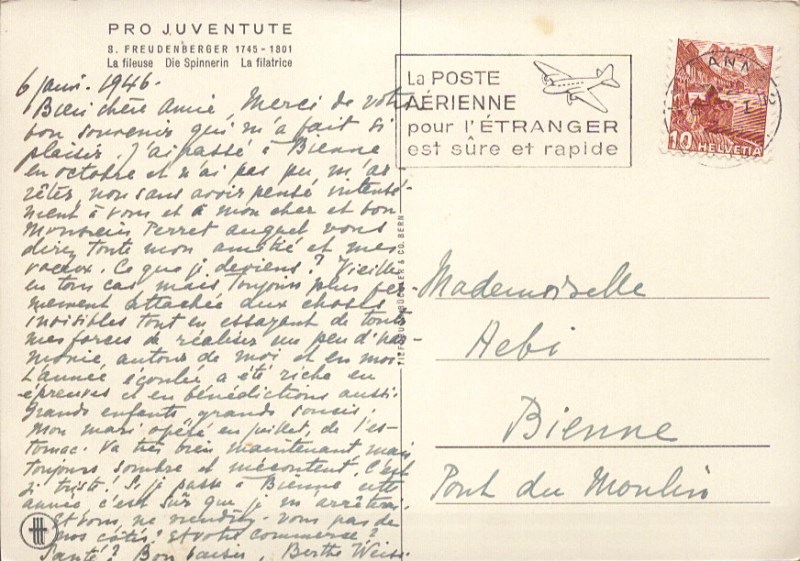 PRO JUVENTUTE
S. FREUDENBERGER 1745 - 1801
La fileuse Die Spinnerin La filatrice
6 janv. 1946.
Bien chère Amie, Merci de votre
bon souvenir qui m'a fait si
plaisir. J'ai passé à Bienne
en octobre et n'ai pas pu m'ar-
rêter, non sans avoir pensé intensé-
ment à vous et à mon cher et bon
Monsieur Perret auquel vous
direz toute mon amitié et mes
voeux. Ce que je deviens? Vieille
en tous cas mais toujours plus fer-
mement attachée aux choses
invisibles tout en essayant de toutes
mes forces de réaliser un peu d'har-
monie autour de moi et en moi.
L'année écoulée a été riche en
épreuves et en bénédictions aussi.
Grands enfants grands soucis.
Mon mari opéré en juillet, de l'es-
tomac. Va très bien maintenant mais
toujours sombre et mécontent. C'est
si triste! Si je passe à Bienne cette
année c'est sûr que je m'arrêterai.
Et vous, ne viendrez-vous pas de
nos côtés? Et votre commerce?
Santé? Bon baiser, Berthe
La POSTE
AÉRIENNE
pour l'ÉTRANGER
est sûre et rapide
10 HELVETIA
& CO. BERN
Mademoiselle
Aebi
Bienne
Pont du Moulin